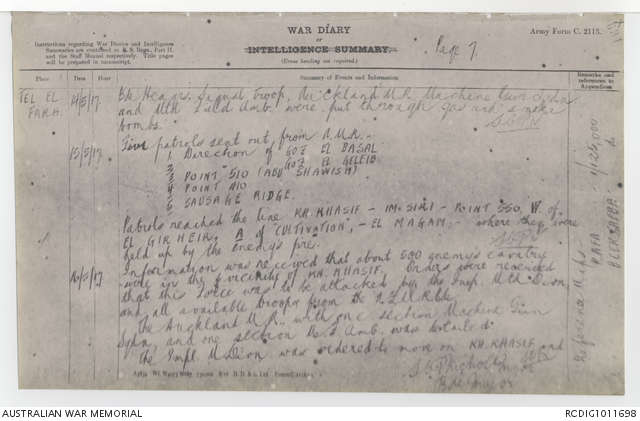 WAR DIARY
or
INTELLIGENCE SUMMARY.
(Erase heading not required.)
Page 7
Army Form C. 2118.
Instructions regarding War Diaries and Intelligence
Summaries are contained in F. S. Regs., Part II.
and the Staff Manual respectively. Title pages
will be prepared in manuscript.
Place Date Hour Summary of Events and Information Remarks and references to Appendices
TEL EL FARA. 14/5/17 Bde Hdqrs. Signal Troop, Auckland M.R. Machine Gun Sqdn
and Mtd Field Amb. were put through gas and smoke
bombs.
15/5/17 Five patrols sent out from A.M.R.
1 Direction of GOZ EL BASAL
2 GOZ EL GELEIB
3 POINT 510 (ABU SHAWISH)
4 POINT 410
5 SAUSAGE RIDGE.
Patrols reached the line KH. KHASIF - IM. SIRI - POINT 550 W. of
EL GIRHEIR, of "CULTIVATION", - EL MAGAM, - where they were
held up by the enemys fire.
16/5/17 Information was received that about 500 enemys cavalry
were in the vicinity of KH. KHASIF. Orders were received
that this force was to be attacked by the Imp. Mtd. Divn.
and all available troops from the N.Z.M.R. Bde.
The Auckland M.R. with one section Machine Gun
Sqdn, and one section Fd. Amb. was detailed.
The Impl. M. Divn was ordered to move on KH. KHASIF and
Major
Bde Major
Reference Maps
RAFA 1/125,000
BEERSHEBA do
AUSTRALIAN WAR MEMORIAL
RCDIG1011698